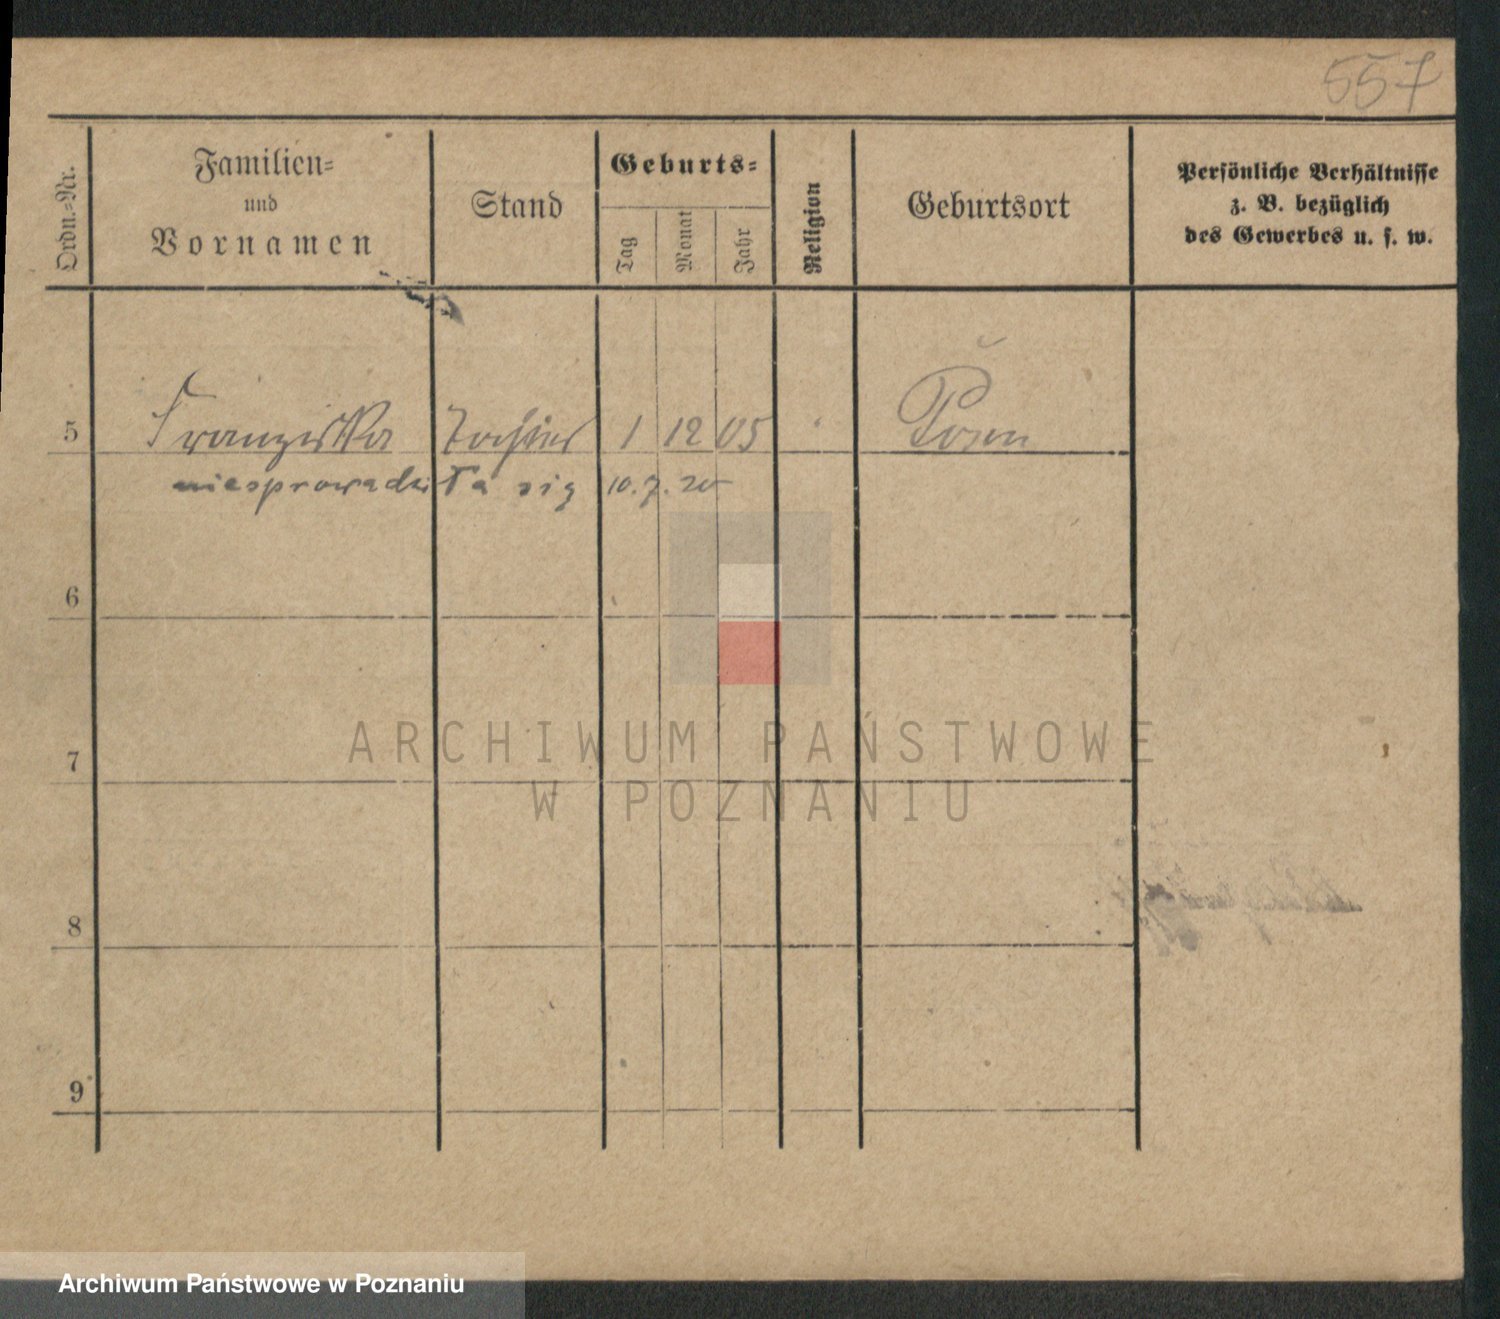 557
Ordn.-Nr.
Familien-
und
Vornamen
Stand
Geburts-
Tag
Monat
Jahr
Religion
Geburtsort
Persönliche Verhältnisse
z. B. bezüglich
des Gewerbes u. s. w.
5 Franziska Tochter 1 12 05 Posen
niesprowadziła się 10.7.20
6
7
8
9
ARCHIWUM PAŃSTWOWE
W POZNANIU
Archiwum Państwowe w Poznaniu